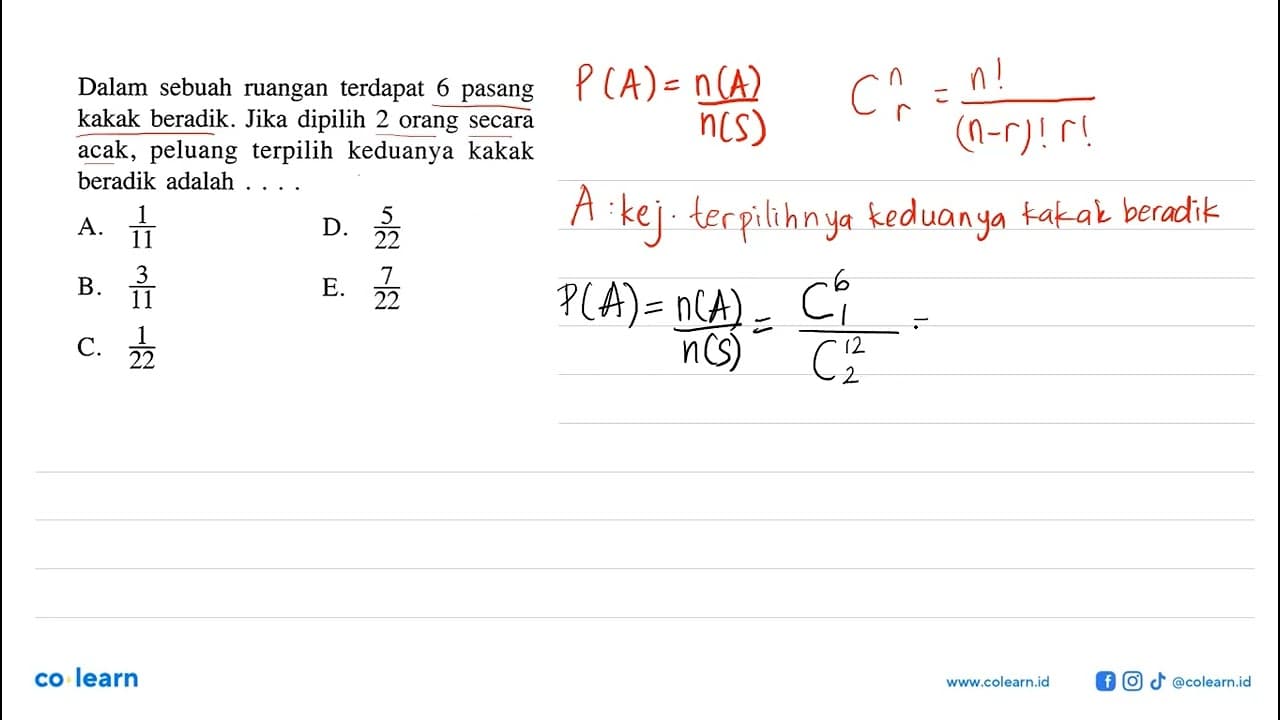 Dalam sebuah ruangan terdapat 6 pasang
kakak beradik. Jika dipilih 2 orang secara
acak, peluang terpilih keduanya kakak
beradik adalah . . . .
A. 1/11
D. 5/22
B. 3/11
E. 7/22
C. 1/22
P(A) = n(A)/n(S)
C^n_r = n!/(n-r)! r!
A : kej. terpilihnya keduanya kakak beradik
P(A) = n(A)/n(S) = C^6_1/C^12_2 =
co learn
www.colearn.id
@colearn.id